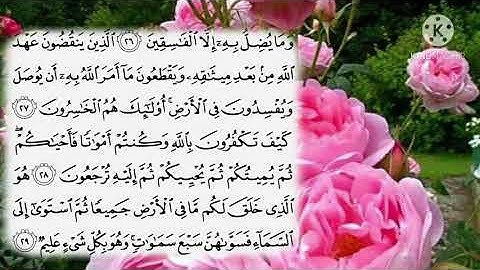 وَمَا يُضِلُّ بِهِۦٓ إِلَّا ٱلْفَٰسِقِينَ ٢٦ ٱلَّذِينَ يَنقُضُونَ عَهْدَ
ٱللَّهِ مِنۢ بَعْدِ مِيثَٰقِهِۦ وَيَقْطَعُونَ مَآ أَمَرَ ٱللَّهُ بِهِۦٓ أَن يُوصَلَ
وَيُفْسِدُونَ فِى ٱلْأَرْضِ ۚ أُو۟لَٰٓئِكَ هُمُ ٱلْخَٰسِرُونَ ٢٧
كَيْفَ تَكْفُرُونَ بِٱللَّهِ وَكُنتُمْ أَمْوَٰتًا فَأَحْيَٰكُمْ ۖ
ثُمَّ يُمِيتُكُمْ ثُمَّ يُحْيِيكُمْ ثُمَّ إِلَيْهِ تُرْجَعُونَ ٢٨ هُوَ
ٱلَّذِى خَلَقَ لَكُم مَّا فِى ٱلْأَرْضِ جَمِيعًا ثُمَّ ٱسْتَوَىٰٓ إِلَى
ٱلسَّمَآءِ فَسَوَّىٰهُنَّ سَبْعَ سَمَٰوَٰتٍ ۚ وَهُوَ بِكُلِّ شَىْءٍ عَلِيمٌ ٢٩